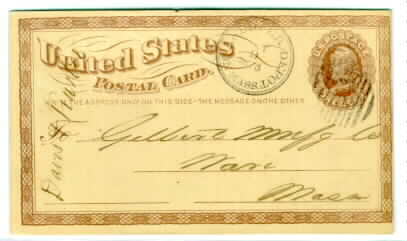 United States
POSTAL CARD.
WRITE THE ADDRESS ONLY ON THIS SIDE - THE MESSAGE ON THE OTHER
To Gilbert Mnfg Co
Ware
Mass